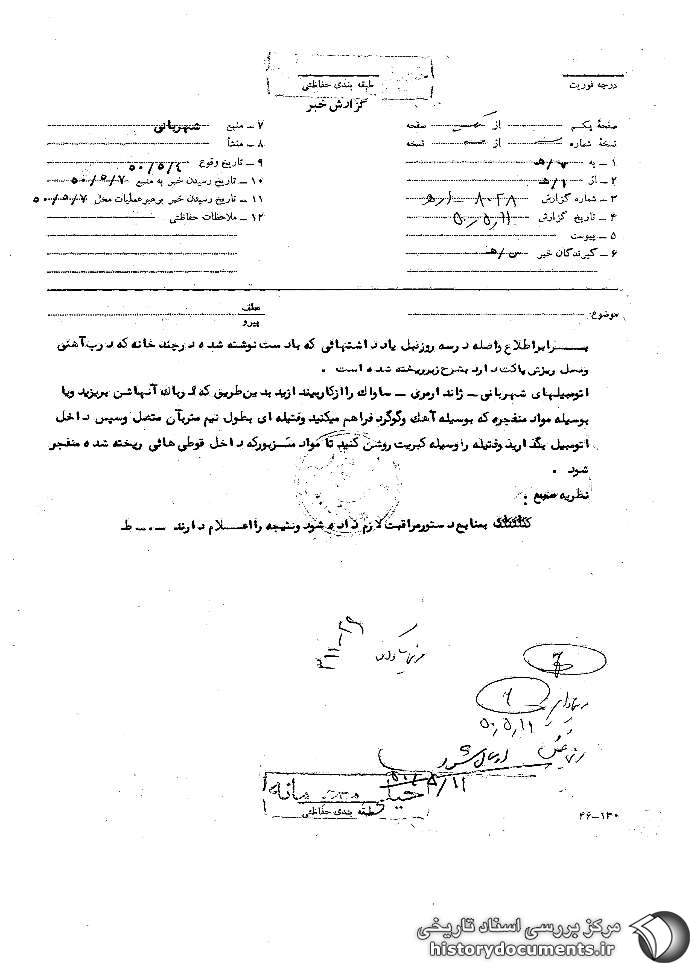 درجه فوریت
طبقه بندی حفاظتی
گزارش خبر
صفحهٔ یکم از یک صفحه
نسخهٔ شماره از نسخه
۱ ـ به ۷/هـ
۲ ـ از ۱/هـ
۳ ـ شماره گزارش ۸۰۲۸/۱هـ
۴ ـ تاریخ گزارش ۵۰٫۵٫۱۱
۵ ـ پیوست
۶ ـ گیرندگان خبر س/هـ
۷ ـ منبع شهربانی
۸ ـ منشأ
۹ ـ تاریخ وقوع ۵۰/۵/۴
۱۰ ـ تاریخ رسیدن خبر به منبع ۵۰/۵/۷
۱۱ ـ تاریخ رسیدن خبر برهبرعملیات محل ۵۰/۵/۷
۱۲ ـ ملاحظات حفاظتی
موضوع:
عطف
پیرو
بـــرابراطلاع واصله درسه روزقبل یادداشتهائی که بادست نوشته شده درچند خانه که درب آهنی
ومحل ریزش پاکت دارد بشرح زیرریخته شده است .
اتومبیلهای شهربانی ـ ژاندارمری ـ ساواک راازکاربیندازید بدین طریق که درباک آنهاشن بریزید ویا
بوسیله مواد منفجره که بوسیله آهک وگوگرد فراهم میکنید وفتیله ای بطول نیم متربآن متصل وسپس داخل
اتومبیل بگذارید وفتیله راوسیله کبریت روشن کنید تا مواد مــزبورکه داخل قوطی هائی ریخته شده منفجر
شود .
نظریه منبع :
بمنابع دستورمراقبت لازم داده شود ونتیجه رااعـــلام دارند ـ.ـ.ـ ط
۷
۶
۵۰٫۵٫۱۱
ارسال شود
۵۰/۵/۱۱
خیلی محرمانه
طبقه بندی حفاظتی
۴۶-۱۳۰
مرکز بررسی اسناد تاریخی
historydocuments.ir